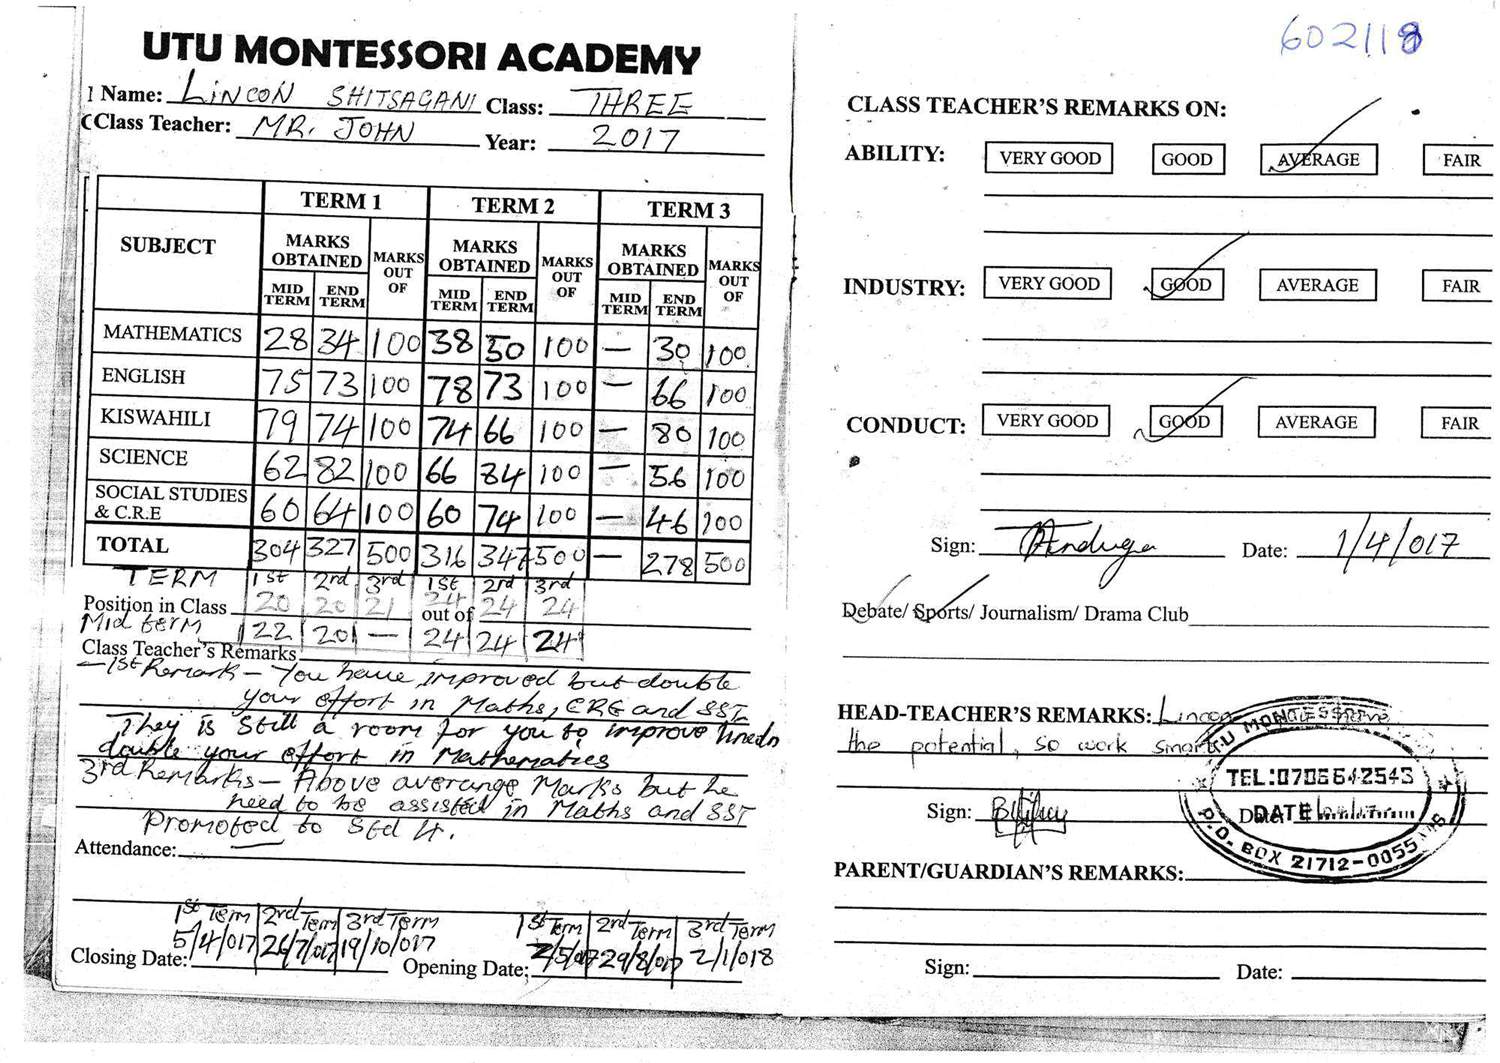 602118
UTU MONTESSORI ACADEMY
Name: LINCON SHITSAGANI Class: THREE
Class Teacher: MR. JOHN Year: 2017
SUBJECT TERM 1 TERM 2 TERM 3
MARKS OBTAINED MARKS OUT OF MARKS OBTAINED MARKS OUT OF MARKS OBTAINED MARKS OUT OF
MID TERM END TERM MID TERM END TERM MID TERM END TERM
MATHEMATICS 28 34 100 38 50 100 — 30 100
ENGLISH 75 73 100 78 73 100 — 66 100
KISWAHILI 79 74 100 74 66 100 — 80 100
SCIENCE 62 82 100 66 84 100 — 56 100
SOCIAL STUDIES & C.R.E 60 64 100 60 74 100 — 46 100
TOTAL 304 327 500 316 347 500 — 278 500
TERM 1st 2nd 3rd 1st 2nd 3rd
Position in Class 20 20 21 out of 24 24 24
Mid term 22 20 — 24 24 24
Class Teacher's Remarks
— 1st Remark – You have improved but double
your effort in Maths, CRE and SST
They is still a room for you to improve
double your effort in Mathematics
3rd Remarks – Above averange Marks but he
need to be assisted in Maths and SST
Promoted to Std 4.
Attendance:
1st Term 2nd Term 3rd Term 1st Term 2nd Term 3rd Term
Closing Date: 5/4/017 26/7/017 19/10/017 Opening Date: 2/5/017 29/8/017 2/1/018
CLASS TEACHER'S REMARKS ON:
ABILITY: VERY GOOD GOOD AVERAGE FAIR
INDUSTRY: VERY GOOD GOOD AVERAGE FAIR
CONDUCT: VERY GOOD GOOD AVERAGE FAIR
Sign: Date: 1/4/017
Debate/ Sports/ Journalism/ Drama Club
HEAD-TEACHER'S REMARKS: Lincon have
the potential, so work smart
Sign: Date:
UTU MONTESSORI
TEL:0706642543
DATE
P.O. BOX 21712-0055
PARENT/GUARDIAN'S REMARKS:
Sign: Date: